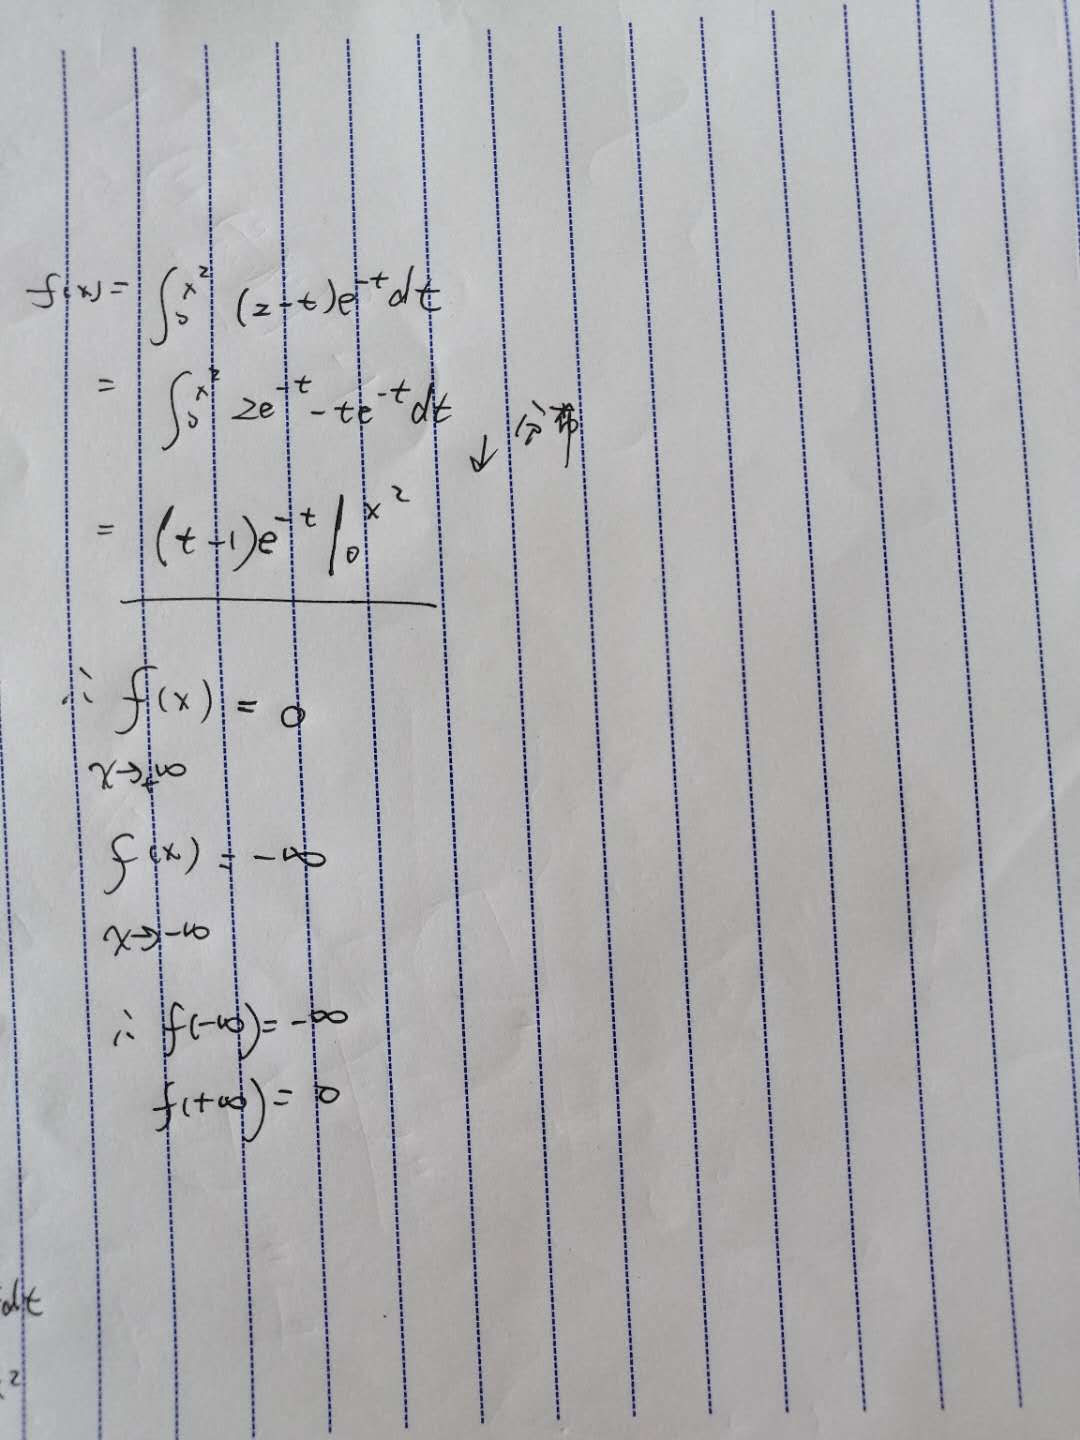 f(x) = ∫₀^{x²} (2-t)e^{-t}dt
= ∫₀^{x²} 2e^{-t} - te^{-t}dt
↓ 分部
= (t-1)e^{-t} |₀^{x²}
∴ f(x) = 0
x→+∞
f(x) = -∞
x→-∞
∴ f(-∞) = -∞
f(+∞) = 0
dt
2